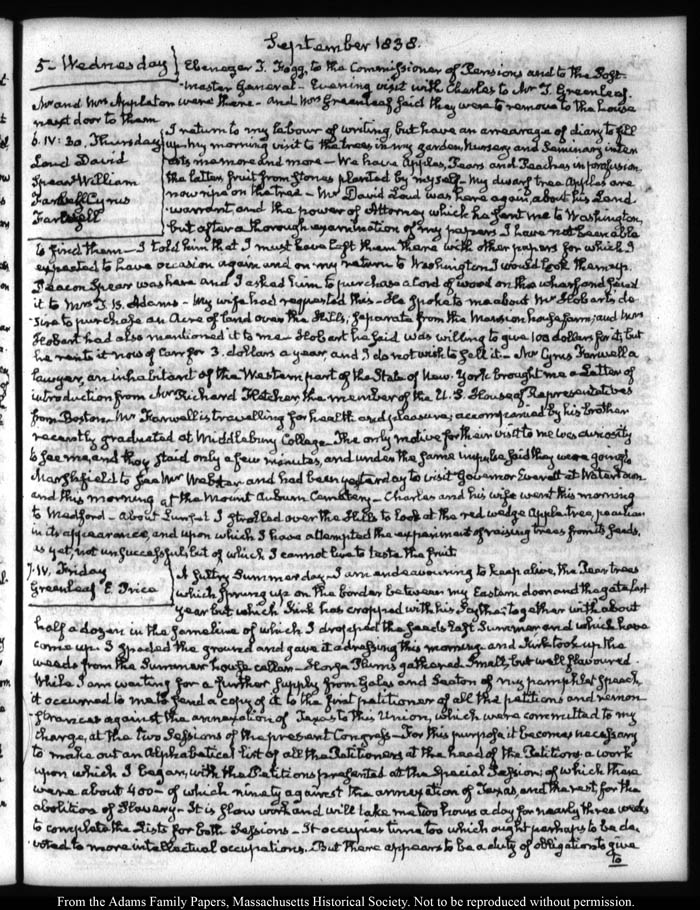 September 1838.
5. Wednesday
Ebenezer T. Fogg, to the Commissioner of Pensions and to the Post-
master General - Evening visit with Charles to Mr T. Greenleaf.
Mr and Mrs Appleton were there - and Mrs Greenleaf said they were to remove to the house
next door to them
6. IV: 30. Thursday
Loud David
Spear William
Farwell Cyrus
Farwell
I return to my labour of writing, but have an arrearage of diary to fill
up - my morning visit to the trees in my garden, Nursery and Seminary inter-
ests me more and more - We have Apples, Pears and Peaches in profusion
the latter fruit from stones planted by myself - My dwarf tree Apples are
now ripe on the tree - Mr David Loud was here again, about his Land
warrant, and the power of Attorney which he sent me to Washington,
but after a thorough examination of my papers I have not been able
to find them - I told him that I must have left them there with other papers for which I
expected to have occasion again and on my return to Washington I would look them up.
Deacon Spear was here and I asked him to purchase a Cord of wood on the wharf and send
it to Mrs T. B. Adams - My wife had requested this - He spoke to me about Mr Hobart's de-
sire to purchase an Acre of land over the Hills, separate from the Mansion house farm; and Mrs
Hobart had also mentioned it to me - Hobart he said was willing to give 100 dollars for it; but
he rents it now of Carr for 3. dollars a year, and I do not wish to sell it - Mr Cyrus Farwell a
lawyer, an inhabitant of the Western part of the State of New-York brought me a Letter of
introduction from Mr Richard Fletcher, the member of the U.S. House of Representatives
from Boston. Mr Farwell is travelling for health and pleasure; accompanied by his brother
recently graduated at Middlebury College - The only motive for their visit to me was curiosity
to see me, and they staid only a few minutes, and under the same impulse said they were going to
Marshfield to see Mr Webster and had been yesterday to visit Governor Everett at Watertown
and this morning at the Mount Auburn Cemetery - Charles and his wife went this morning
to Medford - About Sunset I strolled over the Hills to look at the red wedge Apple tree, peculiar
in its appearance, and upon which I have attempted the experiment of raising trees from its seeds,
as yet, not unsuccessful; but of which I cannot live to taste the fruit
7. IV. Friday
Greenleaf E. Price
A sultry Summer day - I am endeavouring to keep alive, the Pear trees
which sprung up on the border between my Eastern door and the gate last
year but which Kirk has cropped with his Scythe; together with about
half a dozen in the same line of which I dropped the seeds last Summer and which have
come up. I spaded the ground and gave it a dressing this morning and Kirk took up the
weeds from the Summer house cellar - Large Plums gathered. Small, but well flavoured.
While I am waiting for a further supply from Gales and Seaton of my pamphlet speech,
it occurred to me to send a copy of it to the first petitioner of all the petitions and remon-
strances against the annexation of Texas to this Union, which were committed to my
charge, at the two Sessions of the present Congress - For this purpose it becomes necessary
to make out an Alphabetical list of all the Petitioners at the head of the Petitions - a work
upon which I began, with the Petitions presented at the Special Session; of which there
were about 400 - of which ninety against the annexation of Texas, and the rest, for the
abolition of Slavery - It is slow work and will take me two hours a day for nearly three weeks
to complete the Lists for both Sessions - It occupies time too which ought perhaps to be de-
voted to more intellectual occupations. But there appears to be a duty of obligation to give
to
From the Adams Family Papers, Massachusetts Historical Society. Not to be reproduced without permission.